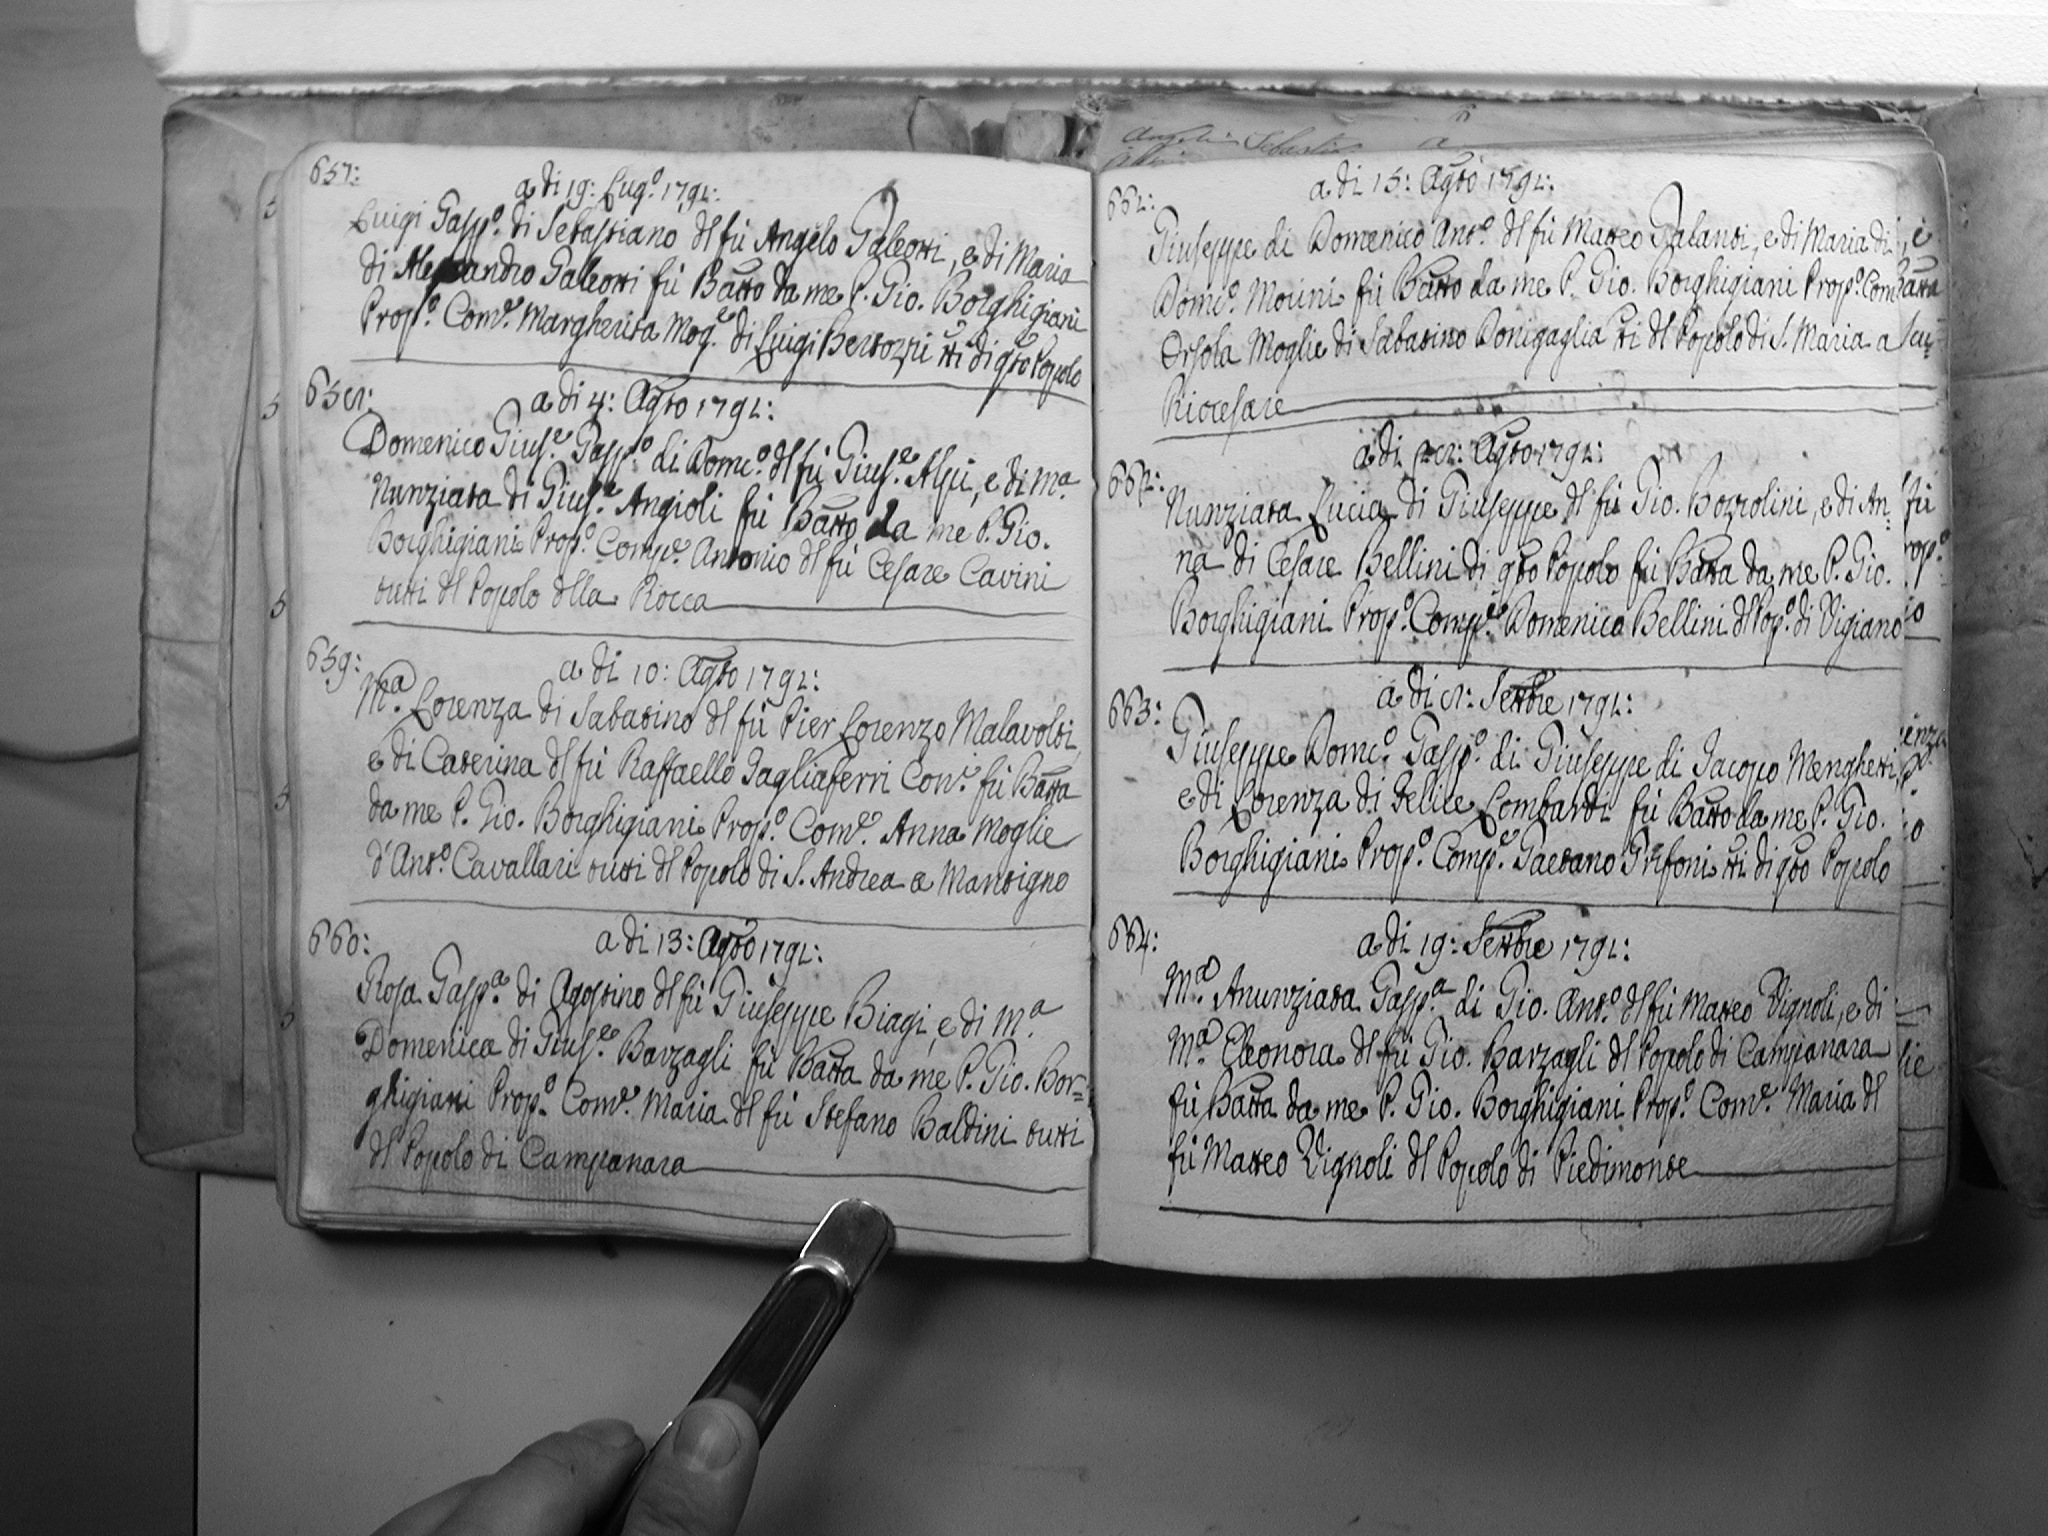 657:
a di 19: Lug.o 1792:
Luigi Gasp.o di Sebastiano dl fù Angelo Galeotti, e di Maria
di Alessandro Galeotti fù Batto da me P. Gio. Borghigiani
Prop.o Com.e Margherita Mog.e di Luigi Bertozzi tti di qto Popolo
658:
a di 4: Agto 1792:
Domenico Gius.e Gasp.o di Dom.co dl fù Gius.e Alpi, e di M.a
Nunziata di Gius.e Angioli fù Batto da me P. Gio.
Borghigiani Prop.o Comp.e Antonio dl fù Cesare Cavini
tutti dl Popolo dlla Rocca
659:
a di 10: Agto 1792:
M.a Lorenza di Sabatino dl fù Pier Lorenzo Malavolti,
e di Caterina dl fù Raffaello Tagliaferri Con. fù Batta
da me P. Gio. Borghigiani Prop.o Com.e Anna Moglie
d'Ant.o Cavallari tutti dl Popolo di S. Andrea a Mantigno
660:
a di 13: Agto 1792:
Rosa Gasp.a di Agostino dl fù Giuseppe Biagi, e di M.a
Domenica di Gius.e Barzagli fù Batta da me P. Gio. Bor=
ghigiani Prop.o Com.e Maria dl fù Stefano Baldini tutti
dl Popolo di Campanara
a di 15: Agto 1792:
Giuseppe di Domenico Ant.o dl fù Matteo Galanti, e di Maria di
Dom.co Mourini fù Batto da me P. Gio. Borghigiani Prop.o Com
Orsola Moglie di Sabatino Donigaglia tti dl Popolo di S. Maria a
Riocesare
Agto 1792:
Nunziata Lucia di Giuseppe dl fù Gio. Bozzolini, e di An=
na di Cesare Bellini di qto Popolo fù Batta da me P. Gio.
Borghigiani Prop.o Comp.e Domenico Bellini dl Pop.o di Vigiano
663:
a di 8: Settbre 1792:
Giuseppe Dom.co Gasp.o di Giuseppe di Jacopo Menghetti,
e di Lorenza di Felice Lombardi fù Batto da me P. Gio.
Borghigiani Prop.o Comp.e Gaetano Grifoni tti di qto Popolo
664:
a di 19: Settbre 1792:
M.a Anunziata Gasp.a di Gio. Ant.o dl fù Matteo Vignoli, e di
M.a Eleonora dl fù Gio. Barzagli dl Popolo di Campanara
fù Batta da me P. Gio. Borghigiani Prop.o Com.e Maria dl
fù Matteo Vignoli dl Popolo di Piedimonte